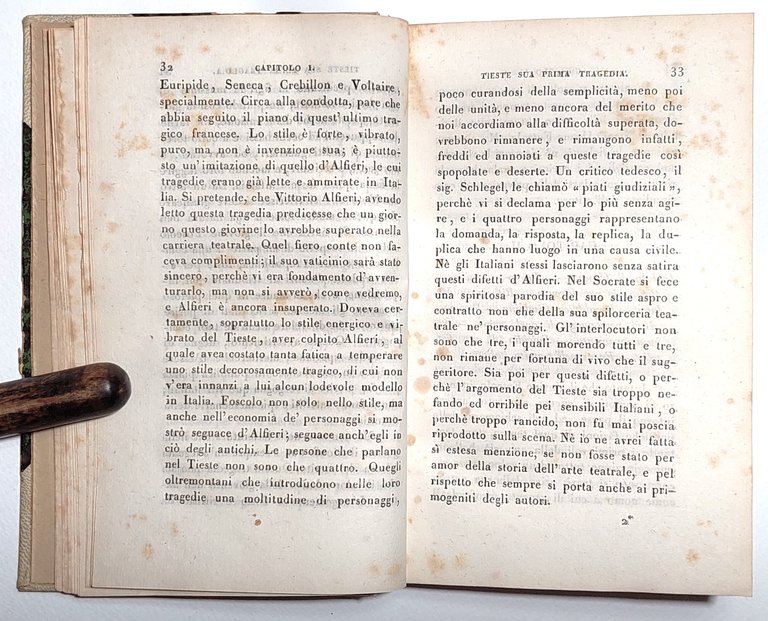 32 CAPITOLO I.
Euripide, Seneca, Crebillon e Voltaire,
specialmente. Circa alla condotta, pare che
abbia seguito il piano di quest'ultimo tra-
gico francese. Lo stile è forte, vibrato,
puro, ma non è invenzione sua; è piutto-
sto un'imitazione di quello d'Alfieri, le cui
tragedie erano già lette e ammirate in Ita-
lia. Si pretende, che Vittorio Alfieri, avendo
letto questa tragedia predicesse che un gior-
no questo giovine lo avrebbe superato nella
carriera teatrale. Quel fiero conte non fa-
ceva complimenti; il suo vaticinio sarà stato
sincero, perchè vi era fondamento d'avven-
turarlo, ma non si avverò, come vedremo,
e Alfieri è ancora insuperato. Doveva cer-
tamente, sopratutto lo stile energico e vi-
brato del Tieste, aver colpito Alfieri, al
quale avea costato tanta fatica a temperare
uno stile decorosamente tragico, di cui non
v'era innanzi a lui alcun lodevole modello
in Italia. Foscolo non solo nello stile, ma
anche nell'economia de' personaggi si mo-
strò seguace d'Alfieri; seguace anch'egli in
ciò degli antichi. Le persone che parlano
nel Tieste non sono che quattro. Quegli
oltremontani che introducono nelle loro
tragedie una moltitudine di personaggi,
TIESTE SUA PRIMA TRAGEDIA. 33
poco curandosi della semplicità, meno poi
delle unità, e meno ancora del merito che
noi accordiamo alla difficoltà superata, do-
vrebbono rimanere, e rimangono infatti,
freddi ed annoiati a queste tragedie così
spopolate e deserte. Un critico tedesco, il
sig. Schlegel, le chiamò "piati giudiziali",
perchè vi si declama per lo più senza agi-
re, e i quattro personaggi rappresentano
la domanda, la risposta, la replica, la du-
plica che hanno luogo in una causa civile.
Nè gli Italiani stessi lasciarono senza satira
questi difetti d'Alfieri. Nel Socrate si fece
una spiritosa parodia del suo stile aspro e
contratto non che della sua spilorceria tea-
trale ne' personaggi. Gl' interlocutori non
sono che tre, i quali morendo tutti e tre,
non rimane per fortuna di vivo che il sug-
geritore. Sia poi per questi difetti, o per-
chè l'argomento del Tieste sia troppo ne-
fando ed orribile pei sensibili Italiani, o
perchè troppo rancido, non fu mai poscia
riprodotto sulla scena. Nè io ne avrei fatta
sì estesa menzione, se non fosse stato per
amor della storia dell'arte teatrale, e pel
rispetto che sempre si porta anche ai pri-
mogeniti degli autori.
2*